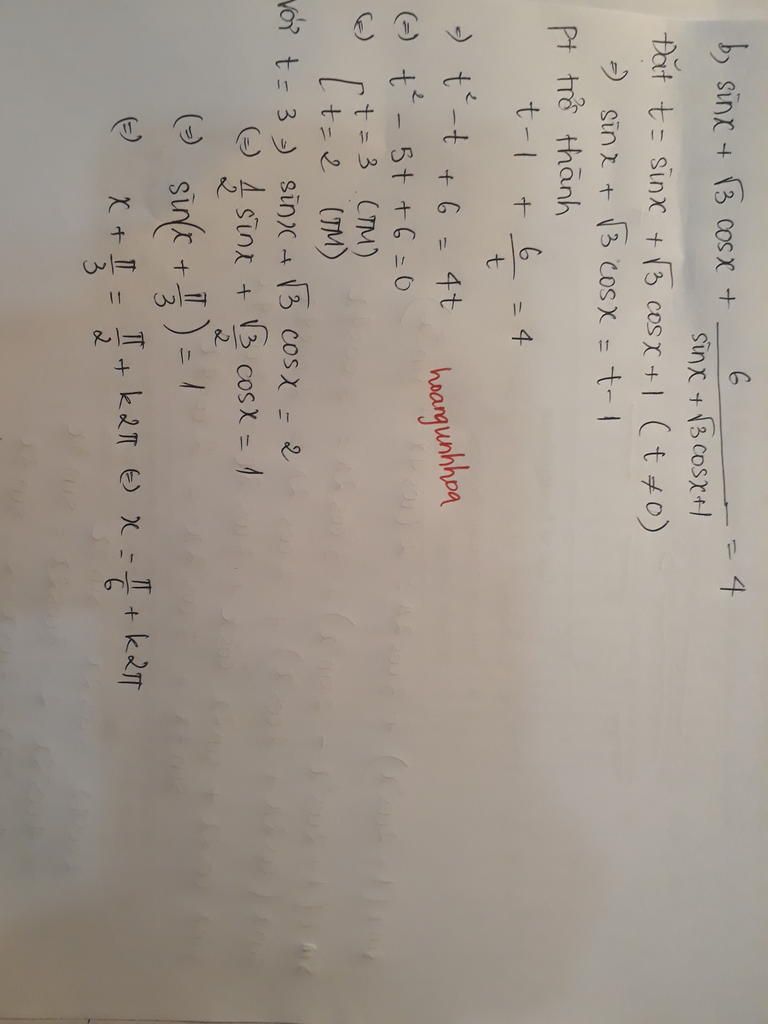 b, sinx + √3 cosx + 6/(sinx + √3cosx+1) = 4
Đặt t = sinx + √3 cosx + 1 ( t ≠ 0)
=) sinx + √3 cosx = t - 1
Pt trở thành
t - 1 + 6/t = 4
=) t² - t + 6 = 4t
(=) t² - 5t + 6 = 0
(=) [ t = 3 (TM)
t = 2 (TM)
Với t = 3 =) sinx + √3 cosx = 2
(=) 1/2 sinx + √3/2 cosx = 1
(=) sin(x + π/3) = 1
(=) x + π/3 = π/2 + k2π (=) x = π/6 + k2π
hoangunhhoa